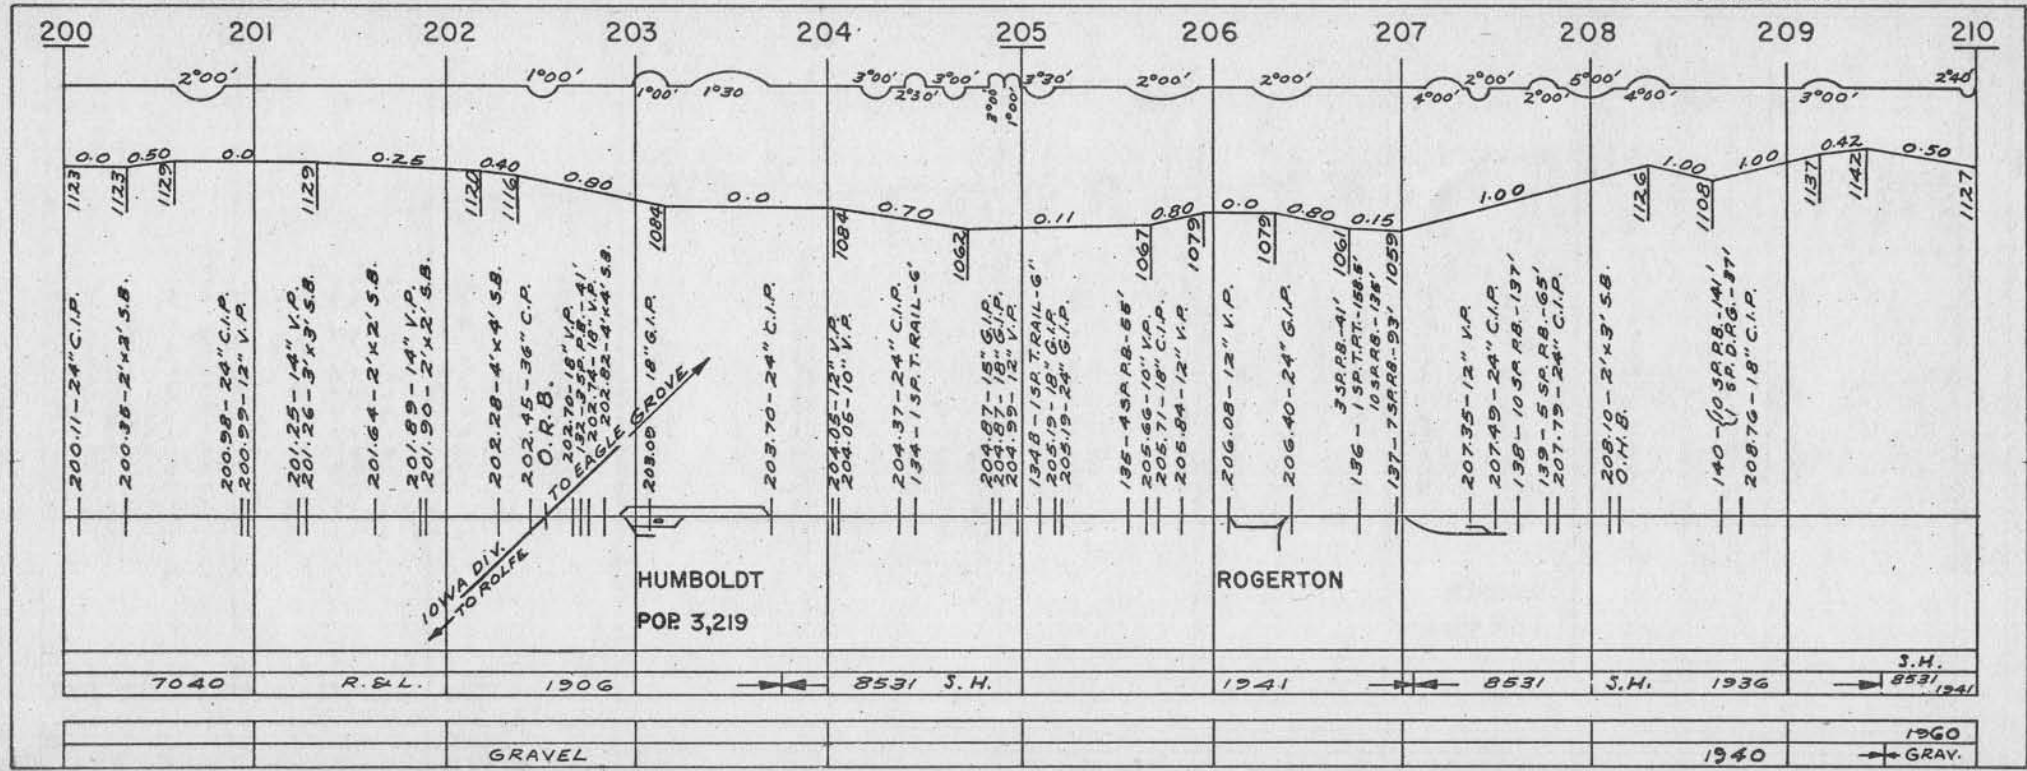 200 201 202 203 204 205 206 207 208 209 210
2°00' 1°00' 1°00' 1°30 3°00' 2°30' 3°00' 3°00' 1°00' 3°30' 2°00' 2°00' 4°00' 2°00' 2°00' 5°00' 4°60' 3°00' 2°40'
0.0 0.50 0.0 0.25 0.40 0.80 0.0 0.70 0.11 0.80 0.0 0.80 0.15 1.00 1.00 1.00 0.42 0.50
1123 1123 1129 1129 1120 1116 1084 1084 1062 1067 1079 1079 1061 1059 1126 1108 1137 1142 1127
200.11-24" C.I.P.
200.35-2'x3' S.B.
200.98-24" C.I.P.
200.99-12" V.P.
201.25-14" V.P.
201.26-3'x3' S.B.
201.64-2'x2' S.B.
201.89-14" V.P.
201.90-2'x2' S.B.
202.28-4'x4' S.B.
202.45-36" C.P.
O.R.B.
202.70-18" V.P.
132-3 SP. P.B.-41'
202.74-18" V.P.
202.82-4'x4' S.B.
203.09 18" G.I.P.
203.70-24" C.I.P.
204.05-12" V.P.
204.05-10" V.P.
204.37-24" C.I.P.
134-1 SP. T. RAIL-6'
204.87-15" G.I.P.
204.87-18" G.I.P.
204.99-12" V.P.
134B-1 SP. T. RAIL-6"
205.19-18" G.I.P.
205.19-24" G.I.P.
135-4 SP. P.B-55'
205.66-10" V.P.
205.71-18" C.I.P.
205.84-12" V.P.
206.08-12" V.P.
206.40-24" G.I.P.
3 SP. P.B-41'
136-1 SP. T.P.T.-158.5'
10 SP. P.B.-135'
137-7 SP. P.B.-93'
207.35-12" V.P.
207.49-24" C.I.P.
138-10 SP. P.B.-137'
139-5 SP. P.B.-65'
207.79-24" C.I.P.
208.10-2'x3' S.B.
O.H.B.
140-{10 SP. P.B.-141'
1 SP. D.P.G.-37'
208.76-18" C.I.P.
TO EAGLE GROVE
IOWA DIV.
TO ROLFE
HUMBOLDT
POP. 3,219
ROGERTON
S.H.
7040 R.&L. 1906 8531 S.H. 1941 8531 S.H. 1936 8531 1941
1960
GRAVEL 1940 GRAV.